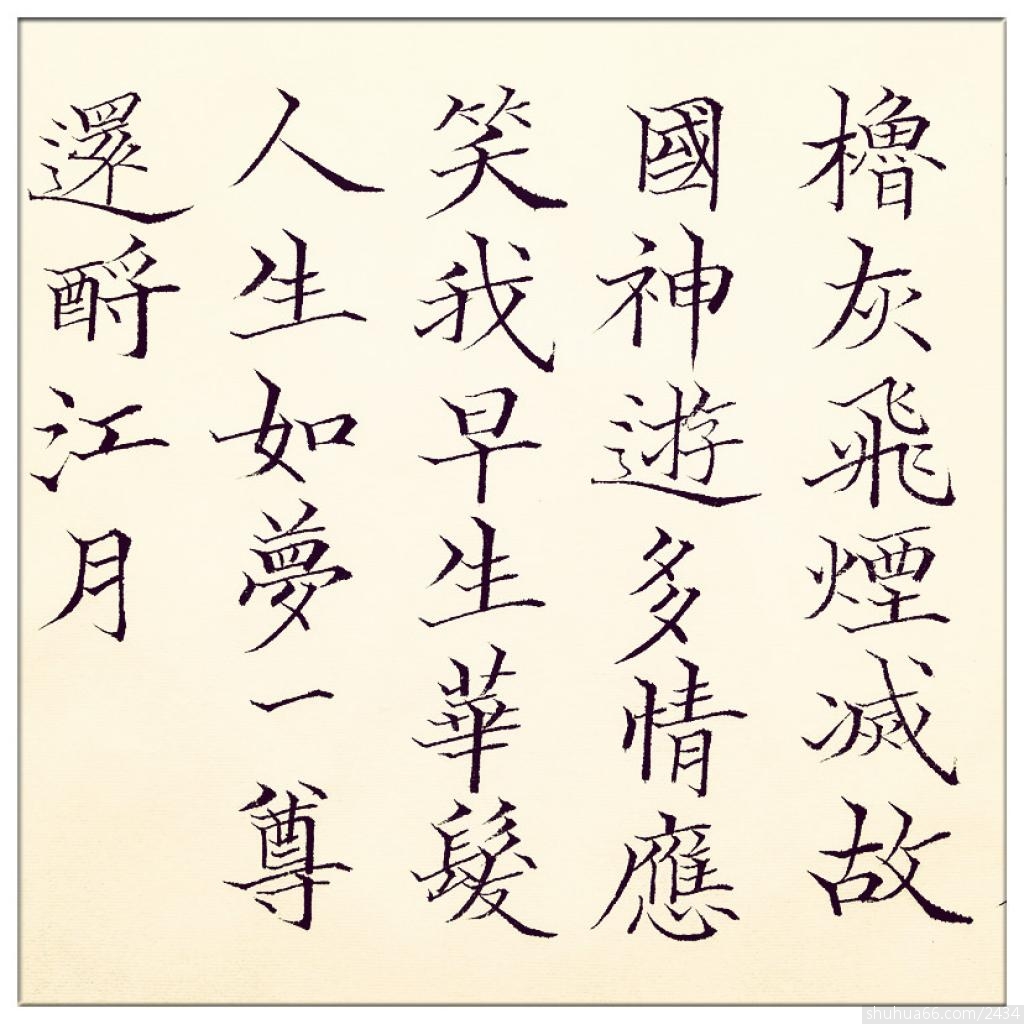 櫓灰飛煙滅故
國神遊多情應
笑我早生華髮
人生如夢一尊
還酹江月
shuhua66.com/2434